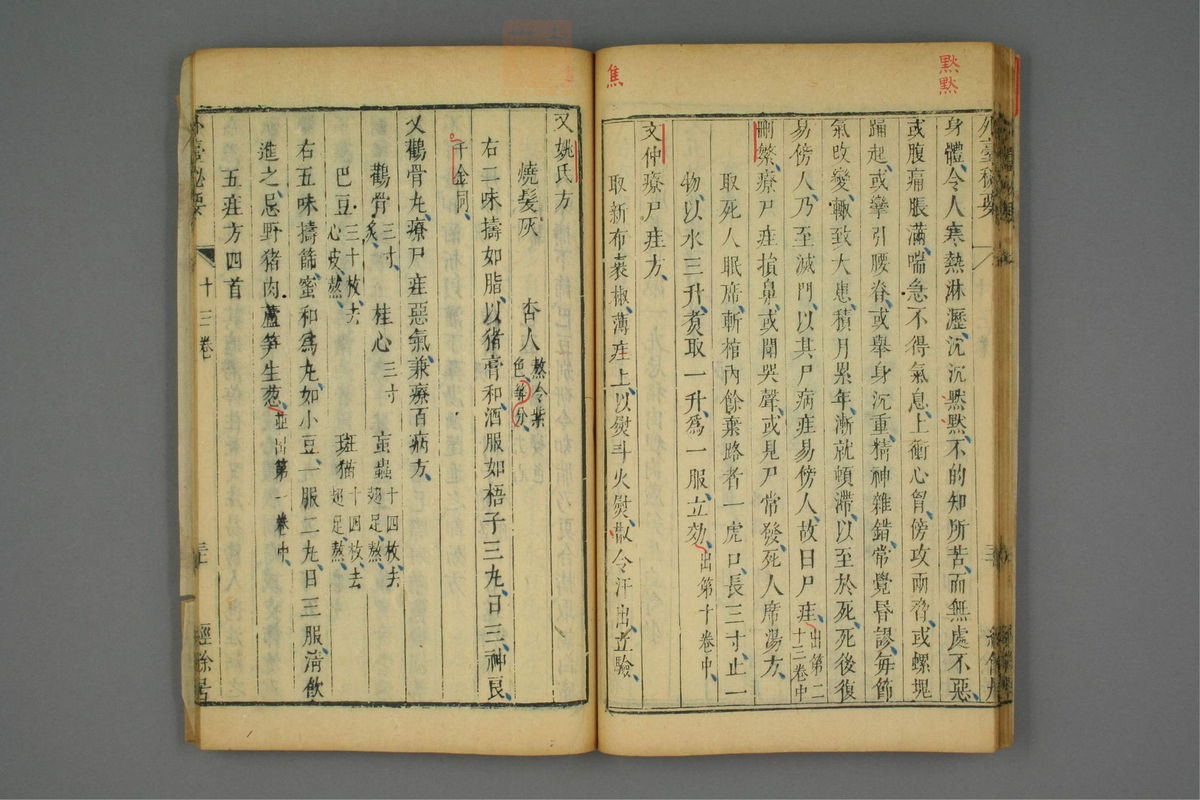 黙黙
焦
身體令人寒熱淋瀝沉沉黙黙不的知所苦而無處不惡
或腹痛脹滿喘急不得氣息上衝心胷傍攻兩脅或螺塊
踊起或攣引腰脊或舉身沉重精神雜錯常覺昬謬毎節
氣改變輙致大患積月累年漸就頓滯以至於死死後復
易傍人乃至滅門以其尸病疰易傍人故曰尸疰出第二
十三卷中
刪繁療尸疰損鼻或聞哭聲或見尸常發死人席湯方
取死人眠席斬棺内餘棄路者一虎口長三寸止一
物以水三升煑取一升爲一服立効出第十卷中
文仲療尸疰方
取新布裹椒薄疰上以熨斗火熨散令汗出立驗
又姚氏方
燒髮灰 杏人熬令紫
色等分
右二味擣如脂以猪膏和酒服如梧子三丸日三神良
千金同
又鸛骨丸療尸疰惡氣兼療百病方
鸛骨三寸
炙 桂心三寸 䖟蟲十四枚去
翅足熬
巴豆三十枚去
心皮熬 斑猫十四枚去
翅足熬
右五味擣篩蜜和爲丸如小豆一服二丸日三服淸飲
進之忌野猪肉蘆笋生葱並出第一卷中
五疰方四首
外臺秘要 十三卷 經餘居